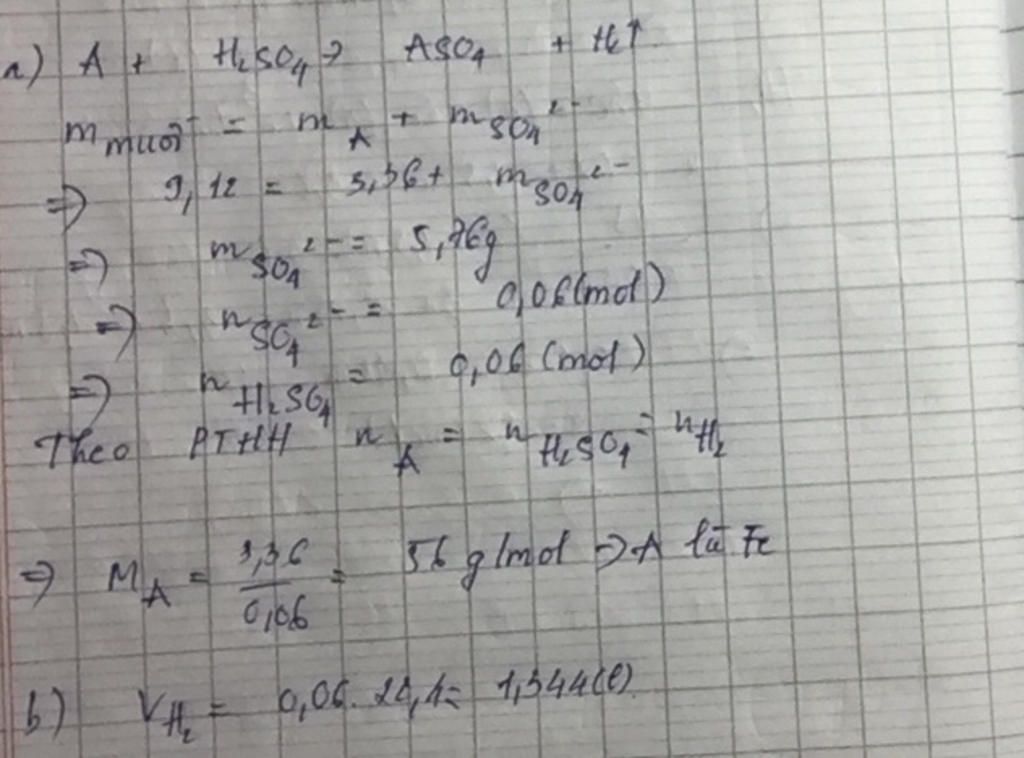 a) A + H₂SO₄ → ASO₄ + H₂↑
m muối = m A + m SO₄²⁻
=> 9,12 = 3,36 + m SO₄²⁻
=> m SO₄²⁻ = 5,76g
=> n SO₄²⁻ = 0,06 (mol)
=> n H₂SO₄ = 0,06 (mol)
Theo PTHH n A = n H₂SO₄ = n H₂
=> M A = 3,36 / 0,06 = 56 g/mol => A là Fe
b) V H₂ = 0,06 . 22,4 = 1,344 (l)